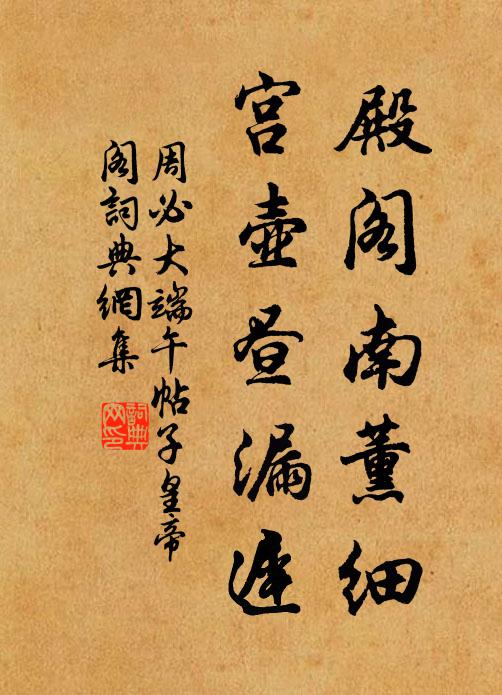 殿阁南薰细
宫壶昼漏迟
周必大端午帖子皇帝
阁詞典網集
詞典
网印